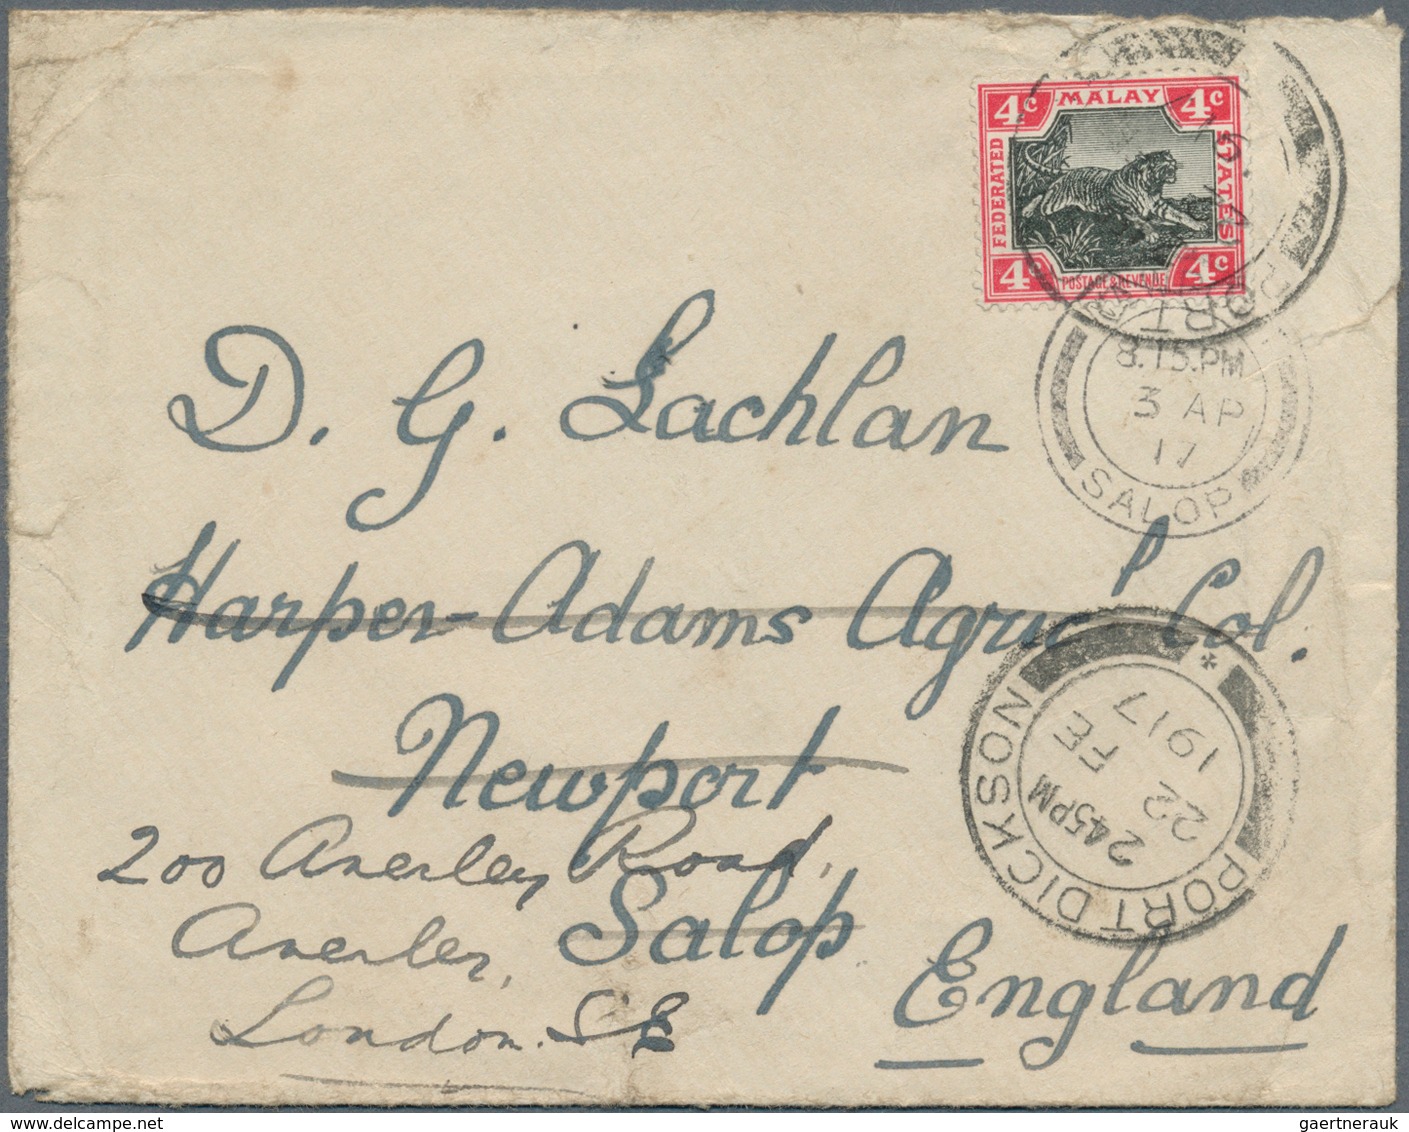 4c MALAY 4c
FEDERATED
STATES
4c POSTAGE & REVENUE 4c
PORT
8.15.PM
3 AP
17
SALOP
D. G. Lachlan
Harper-Adams Agric'l Col.
Newport
Salop
England
200 Anerley Road,
Anerley,
London. S E
PORT DICKSON
*
2 45PM
22 FE
1917
gaertnerauk